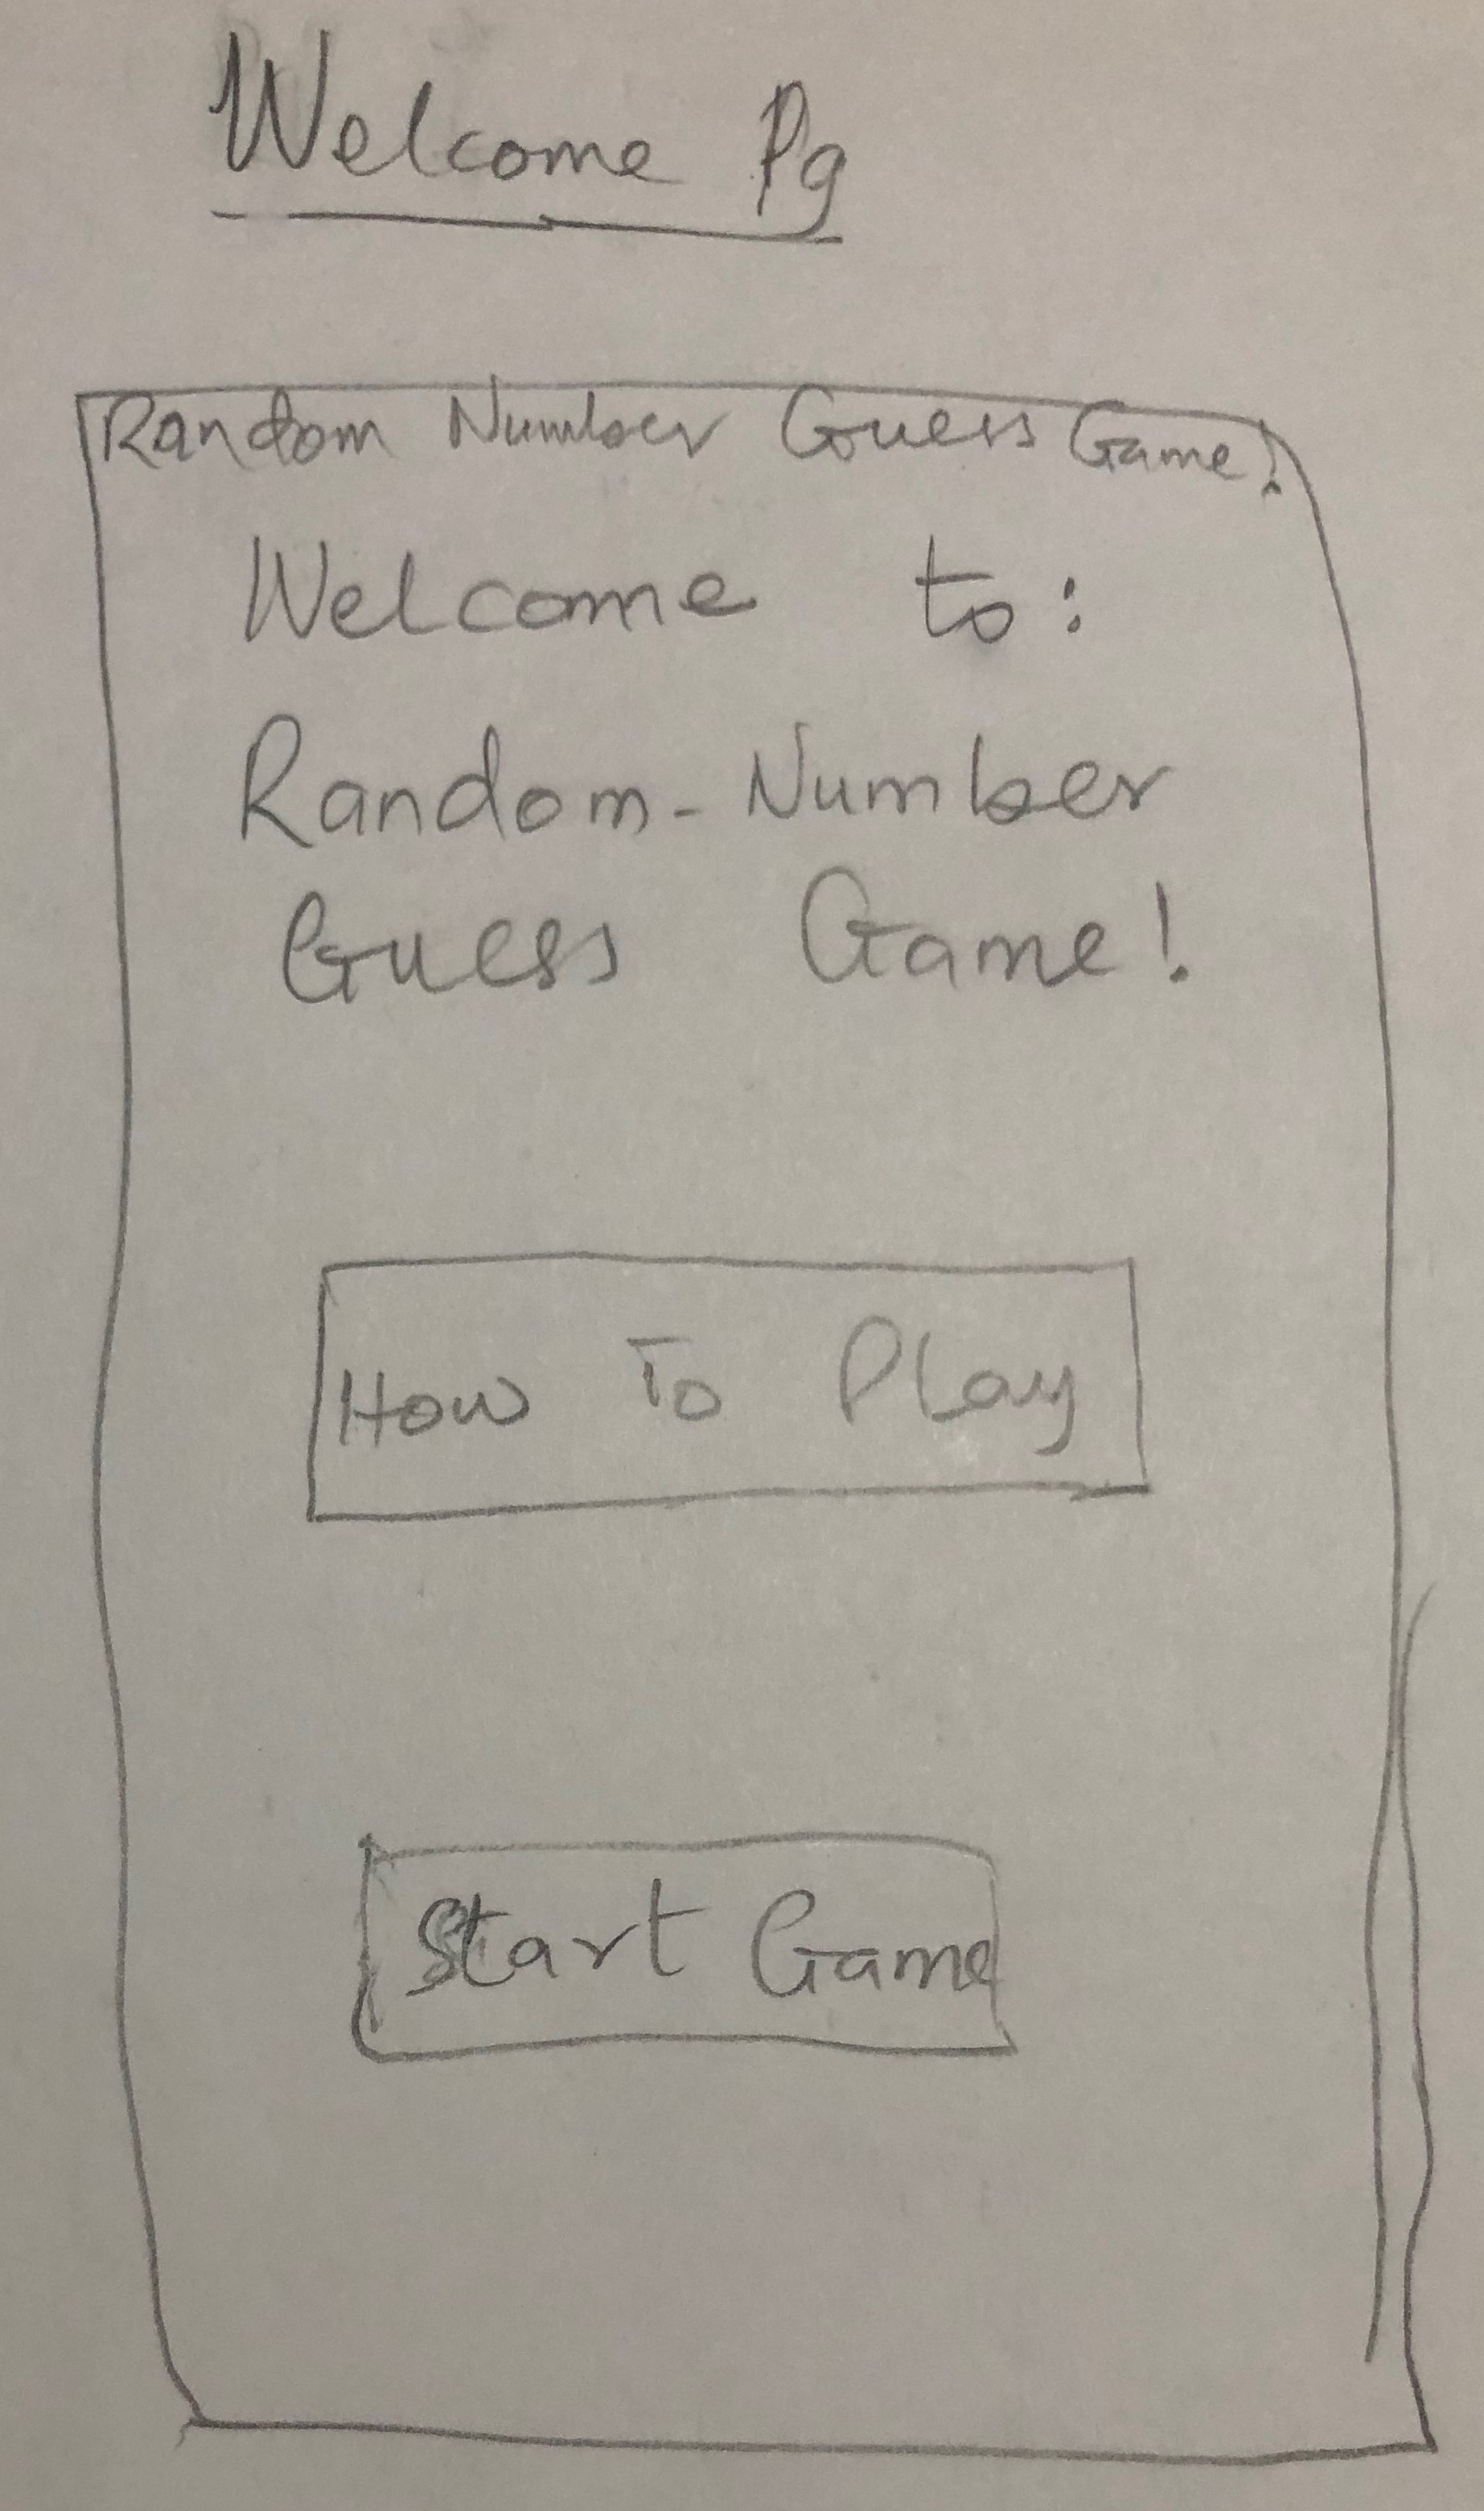 Welcome Pg
Random Number Guess Game!
Welcome to:
Random-Number
Guess Game!
How To Play
Start Game